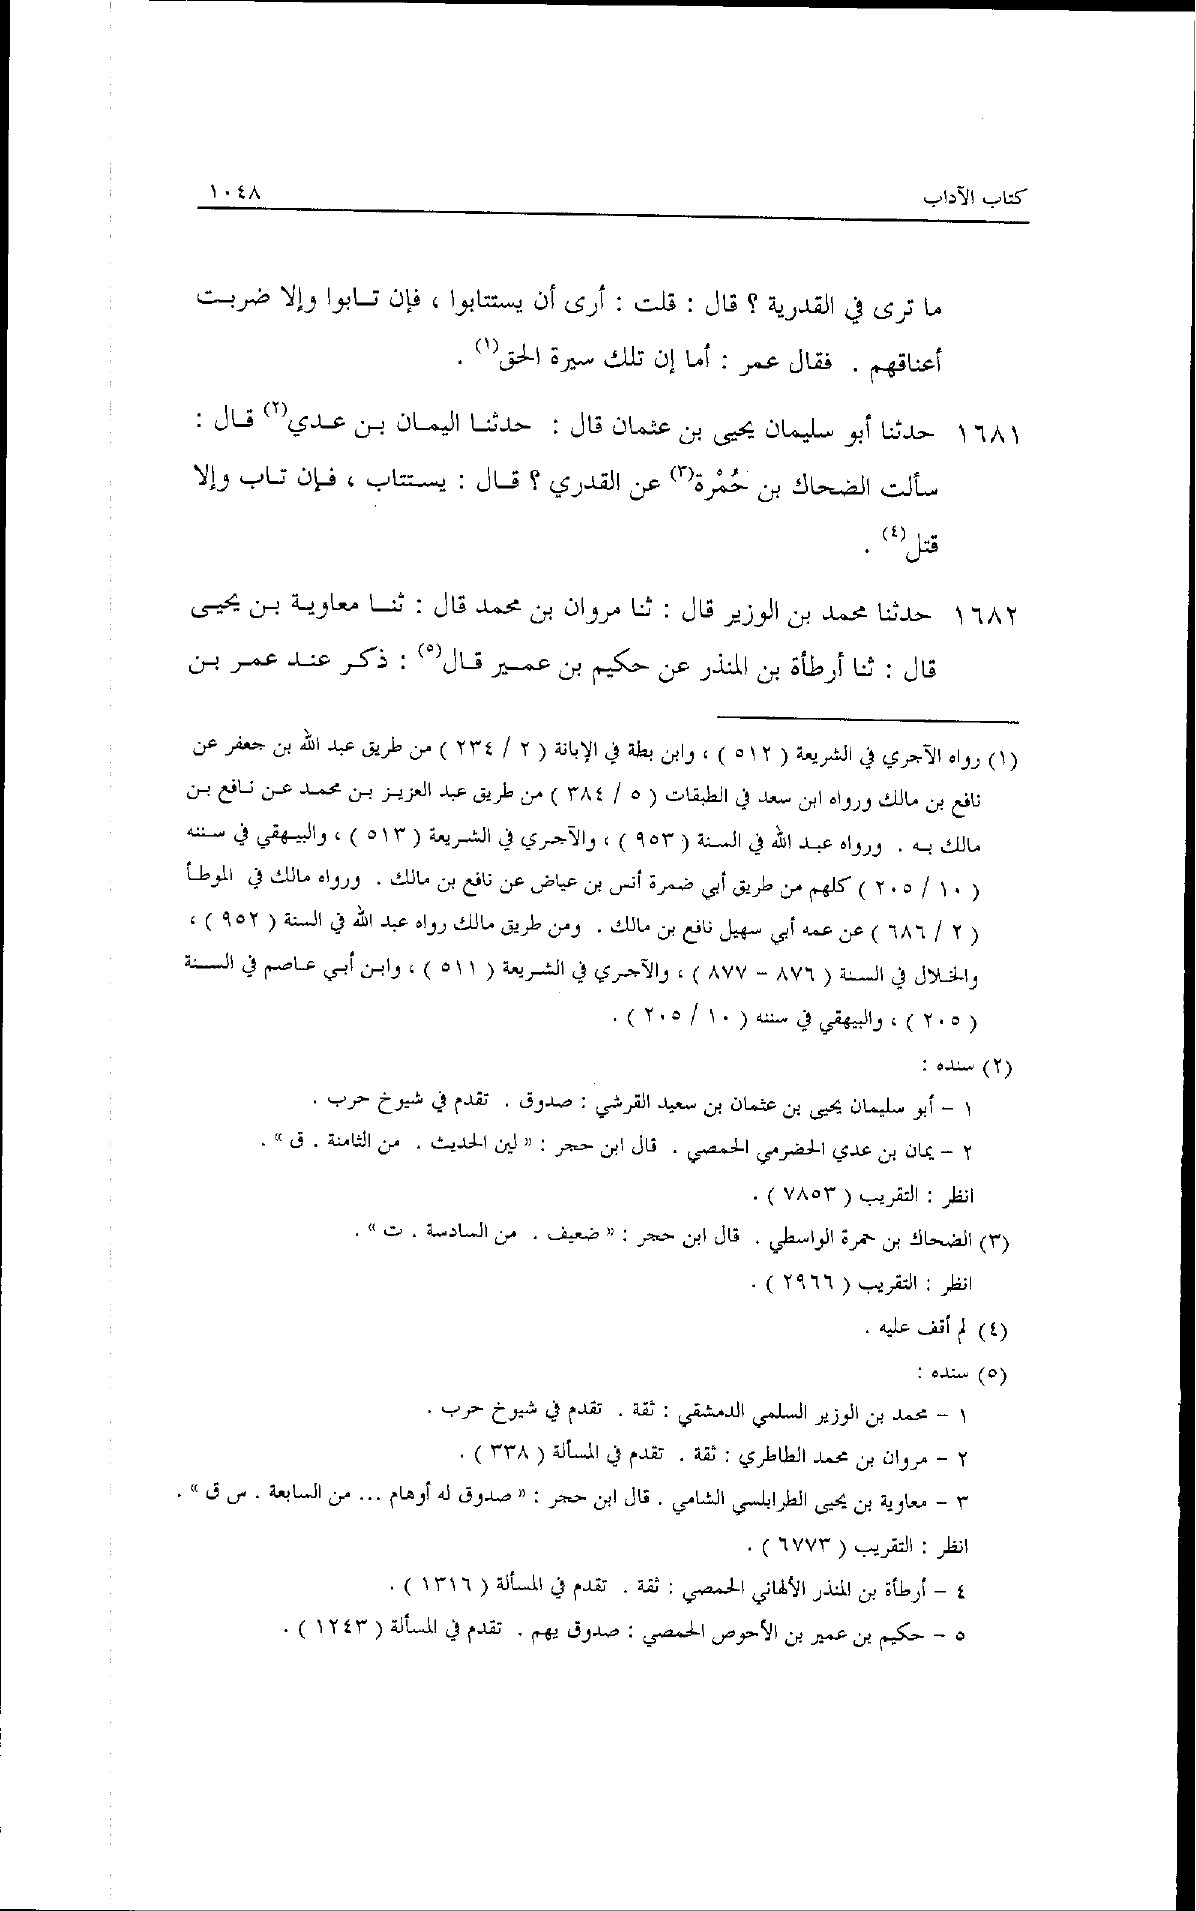 كتاب الآداب ١٠٤٨
ما ترى في القدرية ؟ قال : قلت : أرى أن يستتابوا ، فإن تـابوا وإلا ضربـت
أعناقهم . فقال عمر : أما إن تلك سيرة الحق(١) .
١٦٨١ حدثنا أبو سليمان يحيى بن عثمان قال : حدثنـا اليمـان بـن عـدي(٢) قـال :
سألت الضحاك بن حُمْرة(٣) عن القدري ؟ قـال : يستتاب ، فـإن تـاب وإلا
قتل(٤) .
١٦٨٢ حدثنا محمد بن الوزير قال : ثنا مروان بن محمد قال : ثنـا معاويـة بـن يحيـى
قال : ثنا أرطأة بن المنذر عن حكيم بن عمـير قـال(٥) : ذكـر عنـد عمـر بـن
(١) رواه الآجري في الشريعة ( ٥١٢ ) ، وابن بطة في الإبانة ( ٢ / ٢٣٤ ) من طريق عبد الله بن جعفر عن
نافع بن مالك ورواه ابن سعد في الطبقات ( ٥ / ٣٨٤ ) من طريق عبد العزيـز بـن محمـد عـن نـافع بـن
مالك بـه . ورواه عبـد الله في السـنة ( ٩٥٣ ) ، والآجـري في الشـريعة ( ٥١٣ ) ، والبيـهقي في سـننه
( ١٠ / ٢٠٥ ) كلهم من طريق أبي ضمرة أنس بن عياض عن نافع بن مالك . ورواه مالك في الموطـأ
( ٢ / ٦٨٦ ) عن عمه أبي سهيل نافع بن مالك . ومن طريق مالك رواه عبد الله في السنة ( ٩٥٢ ) ،
والخـلال في السـنة ( ٨٧٦ – ٨٧٧ ) ، والآجـري في الشـريعة ( ٥١١ ) ، وابـن أبـي عـاصم في السـنة
( ٢٠٥ ) ، والبيهقي في سننه ( ١٠ / ٢٠٥ ) .
(٢) سنده :
١ – أبو سليمان يحيى بن عثمان بن سعيد القرشي : صدوق . تقدم في شيوخ حرب .
٢ – يمان بن عدي الحضرمي الحمصي . قال ابن حجر : « لين الحديث . من الثامنة . ق » .
انظر : التقريب ( ٧٨٥٣ ) .
(٣) الضحاك بن حمرة الواسطي . قال ابن حجر : « ضعيف . من السادسة . ت » .
انظر : التقريب ( ٢٩٦٦ ) .
(٤) لم أقف عليه .
(٥) سنده :
١ – محمد بن الوزير السلمي الدمشقي : ثقة . تقدم في شيوخ حرب .
٢ – مروان بن محمد الطاطري : ثقة . تقدم في المسألة ( ٣٣٨ ) .
٣ – معاوية بن يحيى الطرابلسي الشامي . قال ابن حجر : « صدوق له أوهام ... من السابعة . س ق » .
انظر : التقريب ( ٦٧٧٣ ) .
٤ – أرطأة بن المنذر الألهاني الحمصي : ثقة . تقدم في المسألة ( ١٣١٦ ) .
٥ – حكيم بن عمير بن الأحوص الحمصي : صدوق يهم . تقدم في المسألة ( ١٢٤٣ ) .